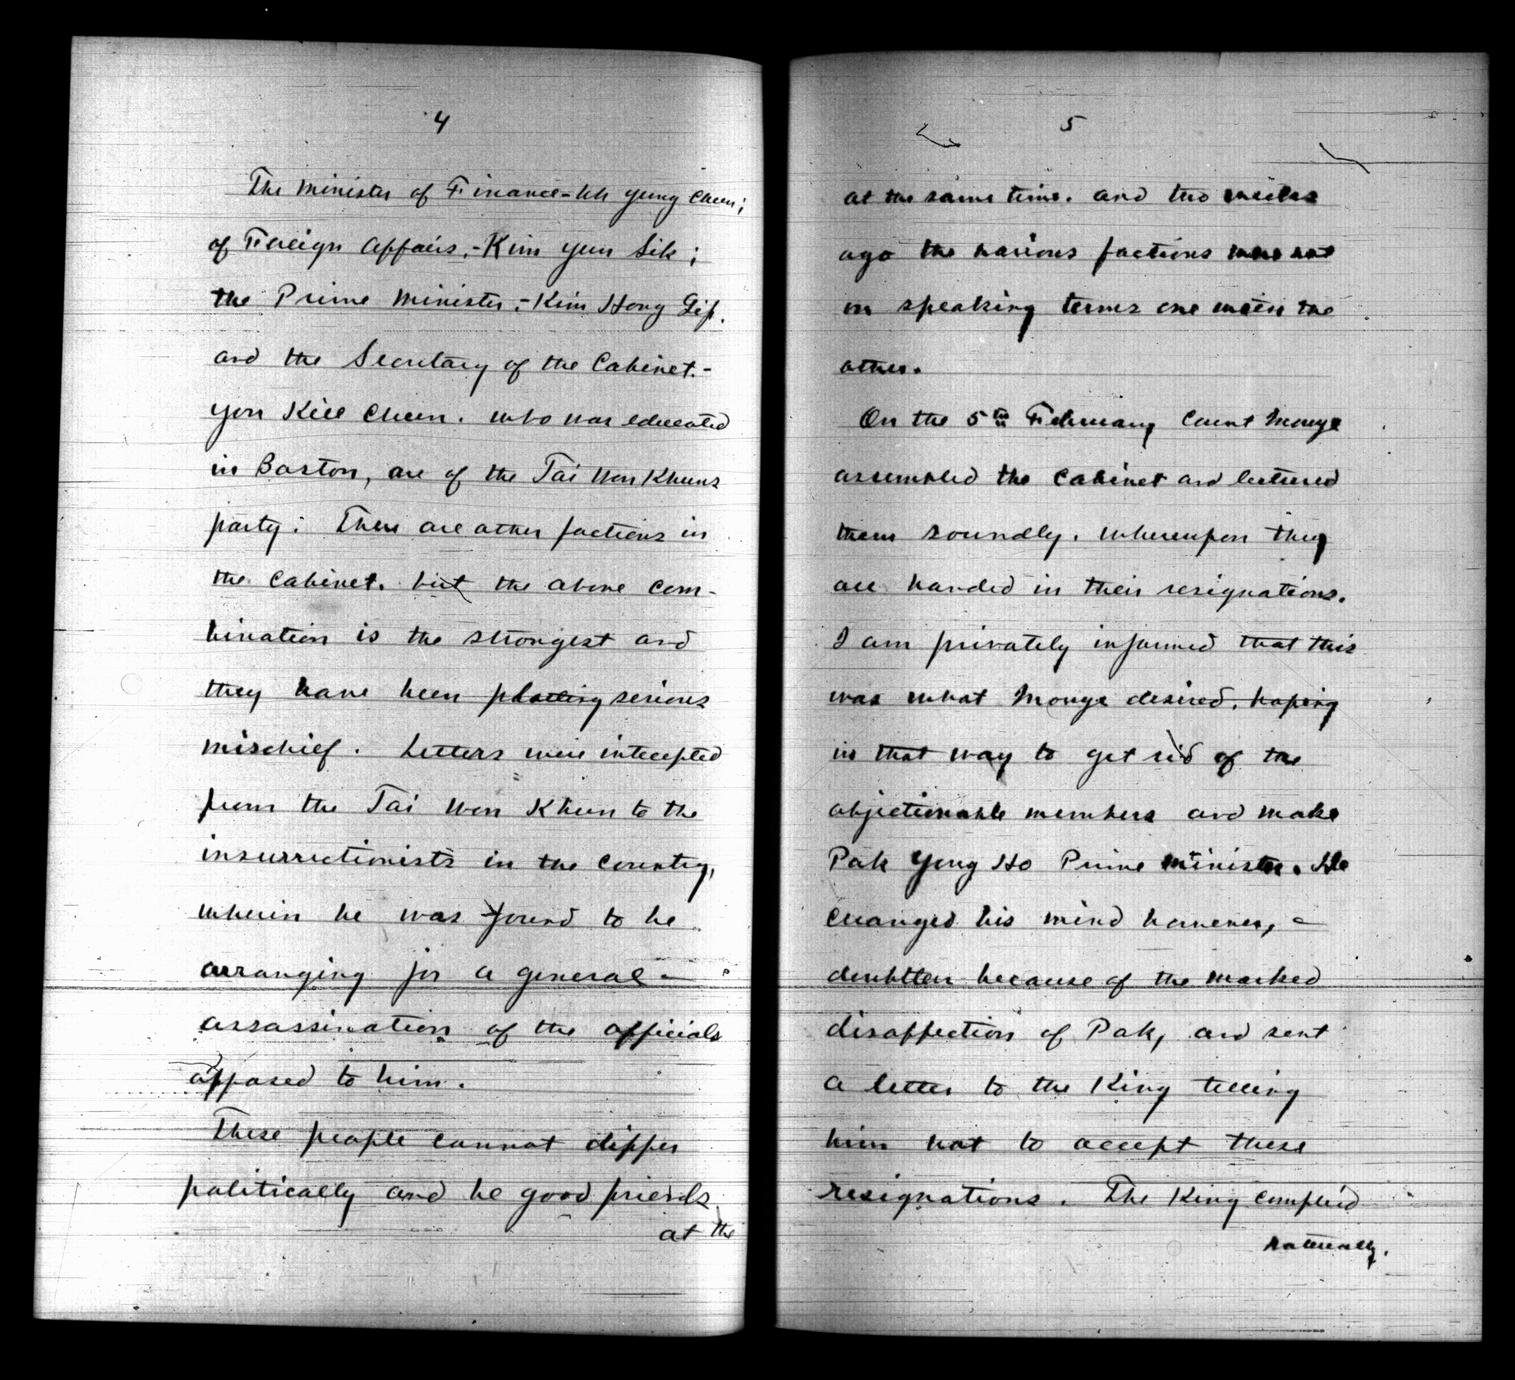 4
The Minister of Finance - Uh Yung Chun;
of Foreign Affairs, - Kim Yun Sik;
the Prime Minister, - Kim Hong Gip.
and the Secretary of the Cabinet. -
Yon Kill Chun. who was educated
in Boston, are of the Tai Won Khuns
party. There are other factions in
the Cabinet. but the above com-
bination is the strongest and
they have been plotting serious
mischief. Letters were intecepted
from the Tai Won Khun to the
insurrectionists in the country,
wherin he was found to be
arranging for a general -
assassination of the officials
opposed to him.
These people cannot differ
politically and be good friends
at the
5
at the same time. and two weeks
ago the various factions were not
on speaking terms one with the
other.
On the 5th February Count Mouye
assembled the Cabinet and lectured
them soundly. whereupon they
all handed in their resignations.
I am privately informed that this
was what Mouye desired, hoping
in that way to get rid of the
objectionable members and make
Pak Yong Ho Prime Minister. He
changed his mind however, -
doubtless because of the marked
disaffection of Pak, and sent
a letter to the King telling
him not to accept these
resignations. The King complied
naturally.